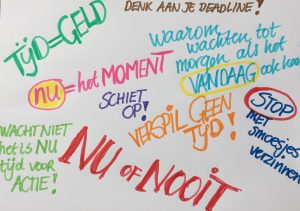 DENK AAN JE DEADLINE!
TIJD=GELD
Waarom
wachten tot
morgen als het
VANDAAG ook kan
nu=het MOMENT
SCHIET
OP!
VERSPIL GEEN
TIJD!
STOP
MET
smoesjes
verzinnen
WACHT NIET
het is NU
tijd voor
ACTIE!
NU OF NOOIT